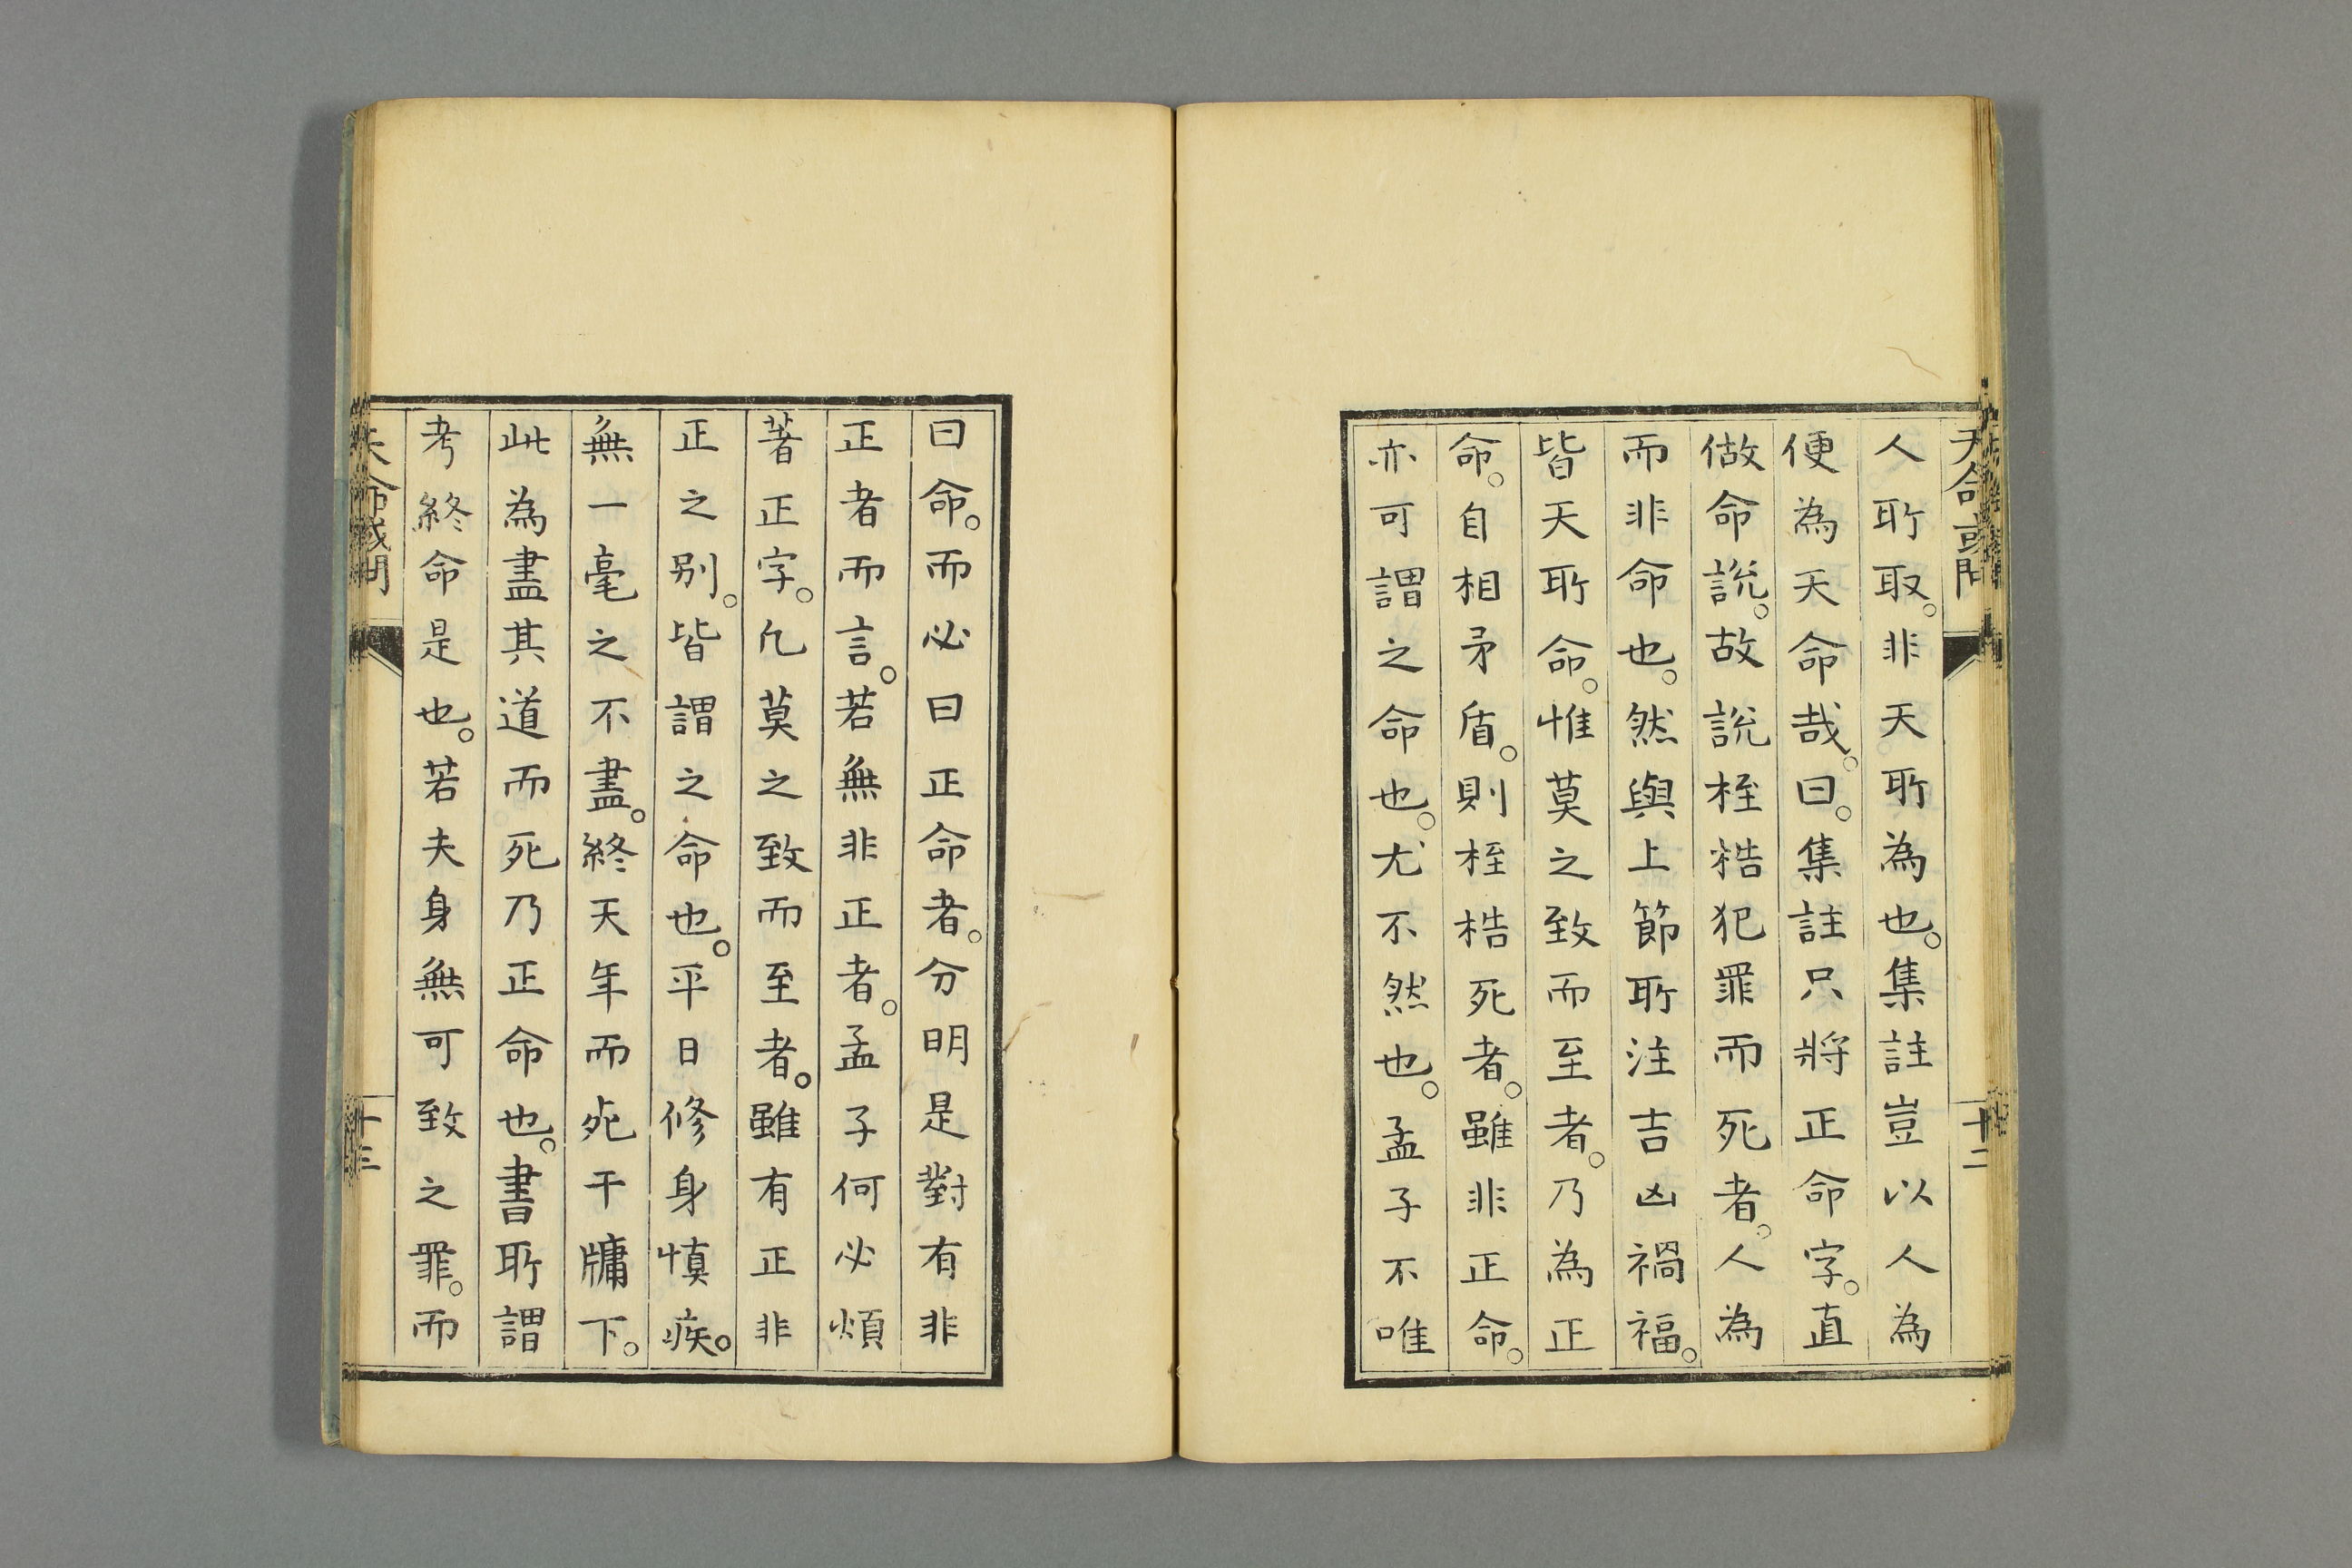 天命或問
十二
人所取。非天所為也。集註豈以人為
便為天命哉。曰。集註只將正命字。直
做命說。故說桎梏犯罪而死者。人為
而非命也。然與上節所注吉凶禍福。
皆天所命。惟莫之致而至者。乃為正
命。自相矛盾。則桎梏死者。雖非正命。
亦可謂之命也。尤不然也。孟子不唯
曰命。而必曰正命者。分明是對有非
正者而言。若無非正者。孟子何必煩
著正字。凡莫之致而至者。雖有正非
正之別。皆謂之命也。平日修身慎疾。
無一毫之不盡。終天年而死于牖下。
此為盡其道而死乃正命也。書所謂
考終命是也。若夫身無可致之罪。而
天命或問
十三